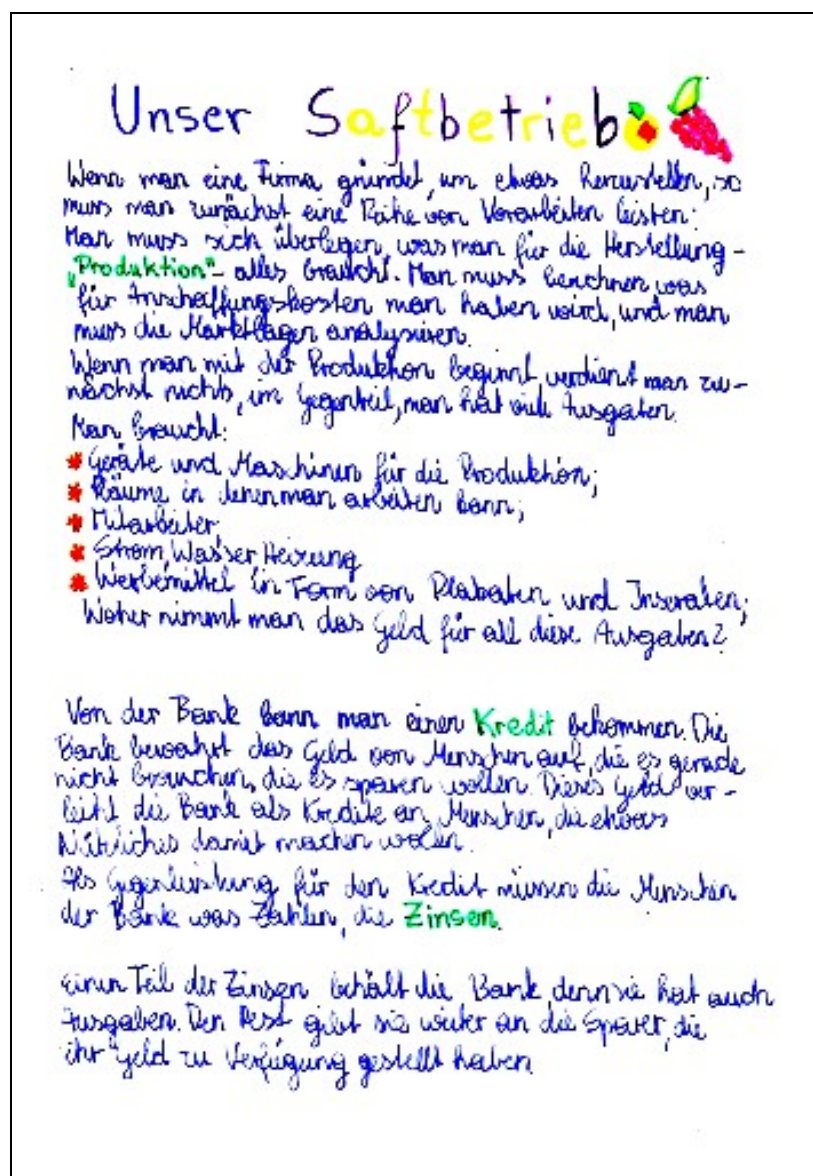 Unser Saftbetrieb
Wenn man eine Firma gründet, um etwas herzustellen, so
muss man zunächst eine Reihe von Vorarbeiten leisten:
Man muss sich überlegen, was man für die Herstellung –
„Produktion“ – alles braucht. Man muss berechnen was
für Anschaffungskosten man haben wird, und man
muss die Marktlagen analysieren.
Wenn man mit der Produktion beginnt verdient man zu-
nächst nichts, im Gegenteil, man hat viele Ausgaben.
Man braucht:
* Geräte und Maschinen für die Produktion;
* Räume in denen man arbeiten kann;
* Mitarbeiter;
* Strom, Wasser Heizung
* Werbemittel in Form von Plakaten und Inseraten;
Woher nimmt man das Geld für all diese Ausgaben?
Von der Bank kann man einen Kredit bekommen. Die
Bank bewahrt das Geld von Menschen auf, die es gerade
nicht brauchen, die es sparen wollen. Dieses Geld ver-
leiht die Bank als Kredite an Menschen, die etwas
Nützliches damit machen wollen.
Als Gegenleistung für den Kredit müssen die Menschen
der Bank was Zahlen, die Zinsen.
Einen Teil der Zinsen behält die Bank, denn sie hat auch
Ausgaben. Den Rest gibt sie weiter an die Sparer, die
ihr Geld zu Verfügung gestellt haben.